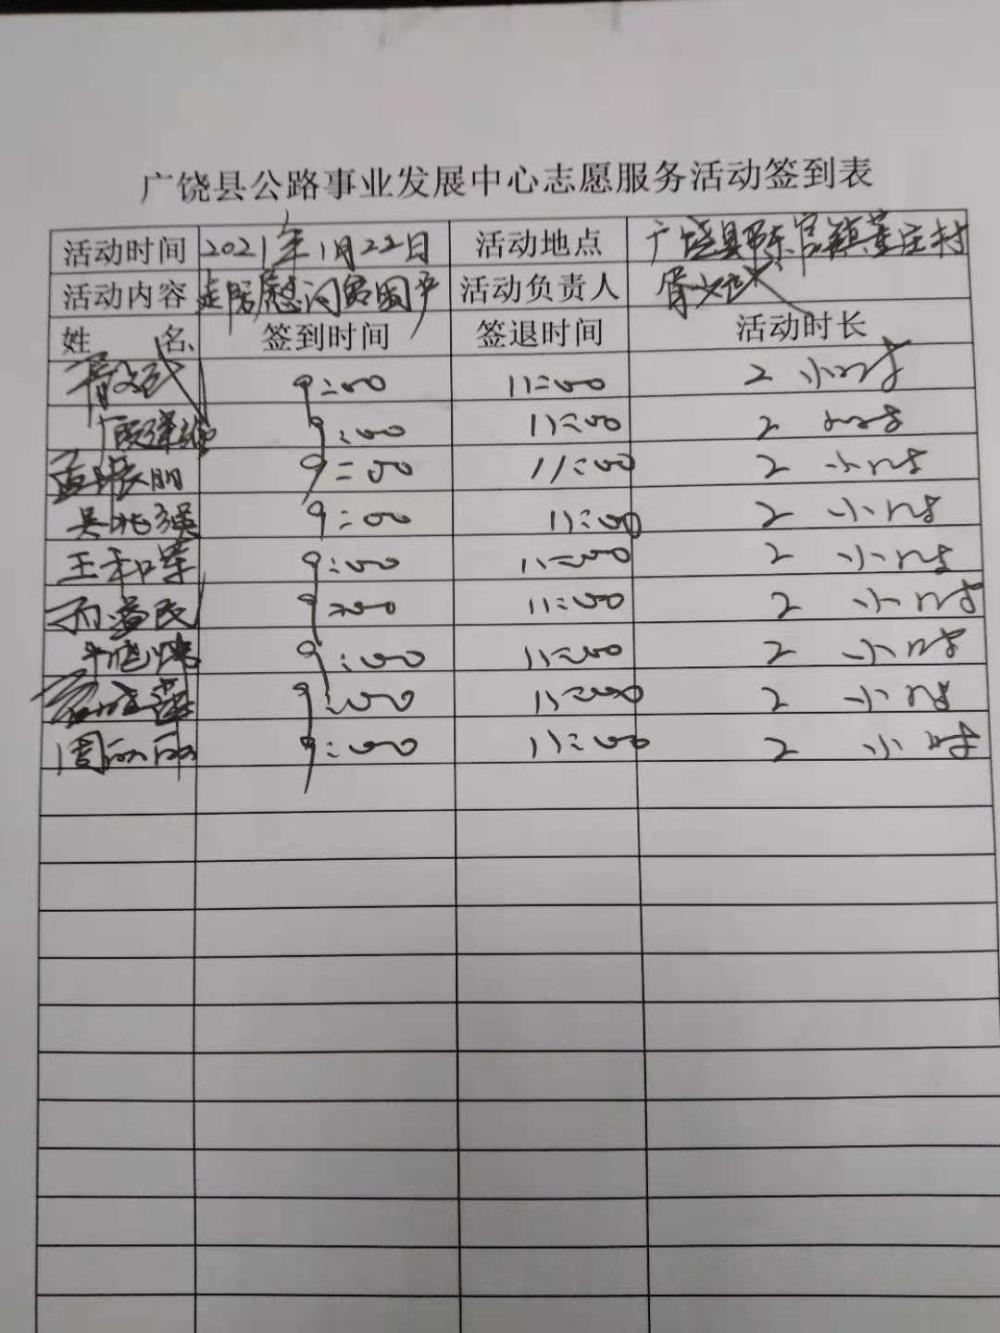 广饶县公路事业发展中心志愿服务活动签到表
活动时间 2021年1月22日 活动地点 广饶县陈官镇董庄村
活动内容 走访慰问贫困户 活动负责人
姓 名 签到时间 签退时间 活动时长
9:00 11:00 2 小时
9:00 11:00 2 小时
孟振朋 9:00 11:00 2 小时
吴兆强 9:00 11:00 2 小时
王和军 9:00 11:00 2 小时
9:00 11:00 2 小时
9:00 11:00 2 小时
9:00 11:00 2 小时
周丽丽 9:00 11:00 2 小时